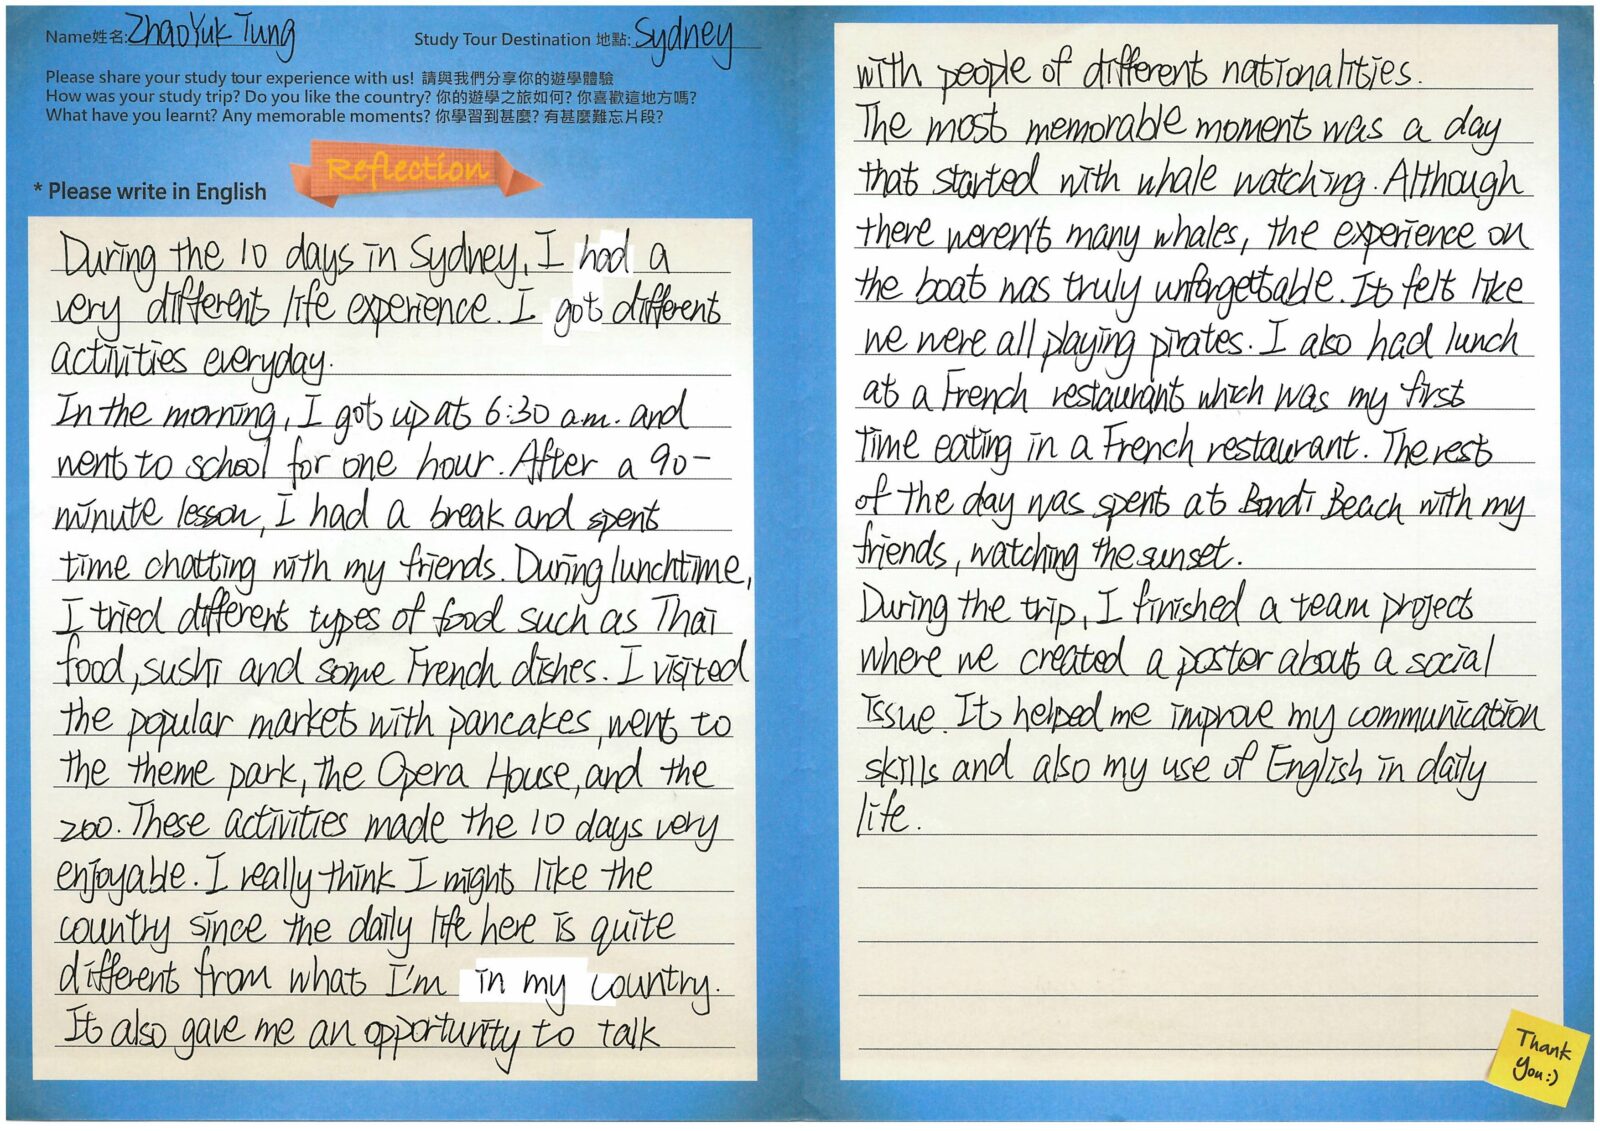 Name姓名: Zhao Yuk Tung
Study Tour Destination 地點: Sydney
Please share your study tour experience with us! 請與我們分享你的遊學體驗
How was your study trip? Do you like the country? 你的遊學之旅如何? 你喜歡這地方嗎?
What have you learnt? Any memorable moments? 你學習到甚麼? 有甚麼難忘片段?
Reflection
* Please write in English
During the 10 days in Sydney, I had a
very different life experience. I got different
activities everyday.
In the morning, I got up at 6:30 a.m. and
went to school for one hour. After a 90-
minute lesson, I had a break and spent
time chatting with my friends. During lunchtime,
I tried different types of food such as Thai
food, sushi and some French dishes. I visited
the popular market with pancakes, went to
the theme park, the Opera House, and the
zoo. These activities made the 10 days very
enjoyable. I really think I might like the
country since the daily life here is quite
different from what I'm in my country.
It also gave me an opportunity to talk
with people of different nationalities.
The most memorable moment was a day
that started with whale watching. Although
there weren't many whales, the experience on
the boat was truly unforgettable. It felt like
we were all playing pirates. I also had lunch
at a French restaurant which was my first
time eating in a French restaurant. The rest
of the day was spent at Bondi Beach with my
friends, watching the sunset.
During the trip, I finished a team project
where we created a poster about a social
issue. It helped me improve my communication
skills and also my use of English in daily
life.
Thank
You:)